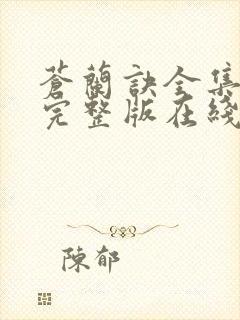 蒼蘭訣全集
完整版在綫
陳郁